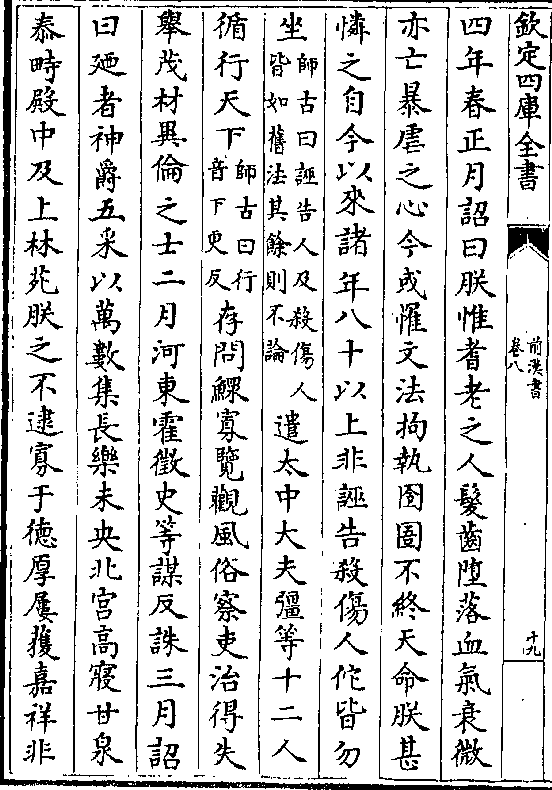 欽定四庫全書
前漢書
卷八
十九
四年春正月詔曰朕惟耆老之人髮齒墮落血氣衰微
亦亡暴虐之心今或罹文法拘執囹圄不終天命朕甚
憐之自今以來諸年八十以上非誣告殺傷人佗皆勿
坐師古曰誣告人及殺傷人皆如舊法其餘則不論遣太中大夫彊等十二人
循行天下師古曰行音下更反存問鰥寡覽觀風俗察吏治得失
舉茂材異倫之士二月河東霍徵史等謀反誅三月詔
曰廼者神爵五采以萬數集長樂未央北宮高寢甘泉
泰畤殿中及上林苑朕之不逮寡于德厚屢獲嘉祥非